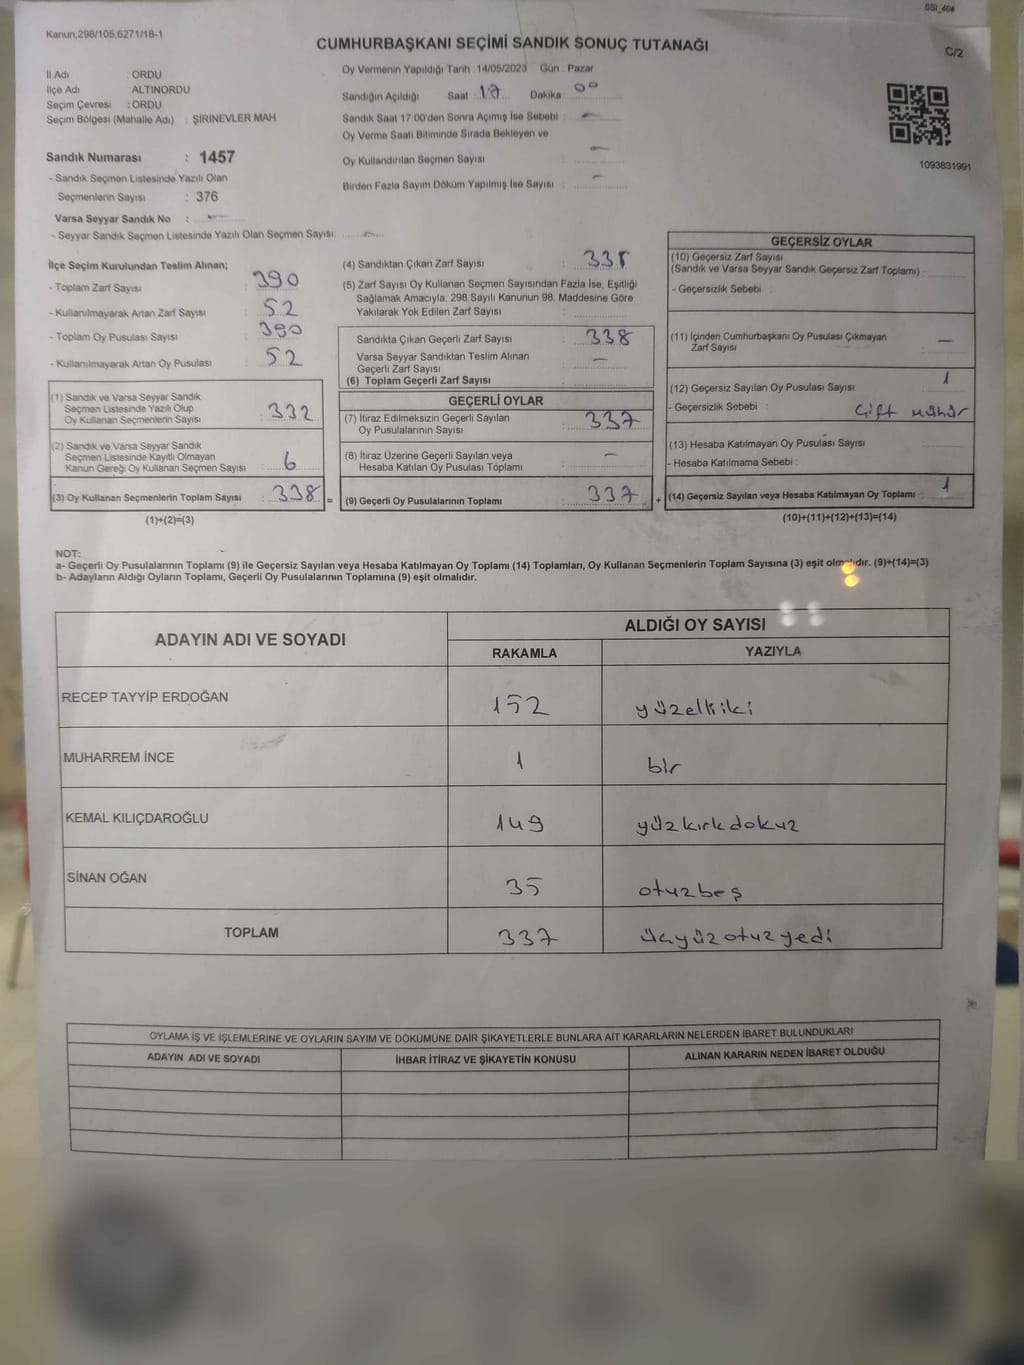 SSR_404
Kanun,298/105,6271/18-1
CUMHURBAŞKANI SEÇİMİ SANDIK SONUÇ TUTANAĞI
C/2
İl Adı : ORDU
İlçe Adı : ALTINORDU
Seçim Çevresi : ORDU
Seçim Bölgesi (Mahalle Adı) : ŞİRİNEVLER MAH.
Sandık Numarası : 1457
- Sandık Seçmen Listesinde Yazılı Olan
Seçmenlerin Sayısı : 376
Varsa Seyyar Sandık No : -
- Seyyar Sandık Seçmen Listesinde Yazılı Olan Seçmen Sayısı: -
Oy Vermenin Yapıldığı Tarih : 14/05/2023 Gün : Pazar
Sandığın Açıldığı Saat 17 Dakika 00
Sandık Saat 17:00'den Sonra Açımış İse Sebebi : -
Oy Verme Saati Bitiminde Sırada Bekleyen ve
Oy Kullandırılan Seçmen Sayısı : -
Birden Fazla Sayım Döküm Yapılmış İse Sayısı : -
1093831991
İlçe Seçim Kurulundan Teslim Alınan;
- Toplam Zarf Sayısı : 390
- Kullanılmayarak Artan Zarf Sayısı : 52
- Toplam Oy Pusulası Sayısı : 390
- Kullanılmayarak Artan Oy Pusulası : 52
(1) Sandık ve Varsa Seyyar Sandık
Seçmen Listesinde Yazılı Olup
Oy Kullanan Seçmenlerin Sayısı : 332
(2) Sandık ve Varsa Seyyar Sandık
Seçmen Listesinde Kayıtlı Olmayan
Kanun Gereği Oy Kullanan Seçmen Sayısı : 6
(3) Oy Kullanan Seçmenlerin Toplam Sayısı : 338 =
(1)+(2)=(3)
(4) Sandıktan Çıkan Zarf Sayısı :
(5) Zarf Sayısı Oy Kullanan Seçmen Sayısından Fazla İse, Eşitliği
Sağlamak Amacıyla, 298 Sayılı Kanunun 98. Maddesine Göre
Yakılarak Yok Edilen Zarf Sayısı :
Sandıkta Çıkan Geçerli Zarf Sayısı : 338
Varsa Seyyar Sandıktan Teslim Alınan
Geçerli Zarf Sayısı : -
(6) Toplam Geçerli Zarf Sayısı :
GEÇERLİ OYLAR
(7) İtiraz Edilmeksizin Geçerli Sayılan
Oy Pusulalarının Sayısı : 337
(8) İtiraz Üzerine Geçerli Sayılan veya
Hesaba Katılan Oy Pusulası Toplamı : -
(9) Geçerli Oy Pusulalarının Toplamı : 337 +
GEÇERSİZ OYLAR
(10) Geçersiz Zarf Sayısı
(Sandık ve Varsa Seyyar Sandık Geçersiz Zarf Toplamı) :
- Geçersizlik Sebebi :
(11) İçinden Cumhurbaşkanı Oy Pusulası Çıkmayan
Zarf Sayısı : -
(12) Geçersiz Sayılan Oy Pusulası Sayısı : 1
- Geçersizlik Sebebi : Çift mühür
(13) Hesaba Katılmayan Oy Pusulası Sayısı :
- Hesaba Katılmama Sebebi :
(14) Geçersiz Sayılan veya Hesaba Katılmayan Oy Toplamı : 1
(10)+(11)+(12)+(13)=(14)
NOT:
a- Geçerli Oy Pusulalarının Toplamı (9) ile Geçersiz Sayılan veya Hesaba Katılmayan Oy Toplamı (14) Toplamları, Oy Kullanan Seçmenlerin Toplam Sayısına (3) eşit olmalıdır. (9)+(14)=(3)
b- Adayların Aldığı Oyların Toplamı, Geçerli Oy Pusulalarının Toplamına (9) eşit olmalıdır.
ADAYIN ADI VE SOYADI ALDIĞI OY SAYISI
RAKAMLA YAZIYLA
RECEP TAYYİP ERDOĞAN 152 yüzelliiki
MUHARREM İNCE 1 bir
KEMAL KILIÇDAROĞLU 149 yüzkırkdokuz
SİNAN OĞAN 35 otuzbeş
TOPLAM 337 üçyüzotuzyedi
OYLAMA İŞ VE İŞLEMLERİNE VE OYLARIN SAYIM VE DÖKÜMÜNE DAİR ŞİKAYETLERLE BUNLARA AİT KARARLARIN NELERDEN İBARET BULUNDUKLARI
ADAYIN ADI VE SOYADI İHBAR İTİRAZ VE ŞİKAYETİN KONUSU ALINAN KARARIN NEDEN İBARET OLDUĞU